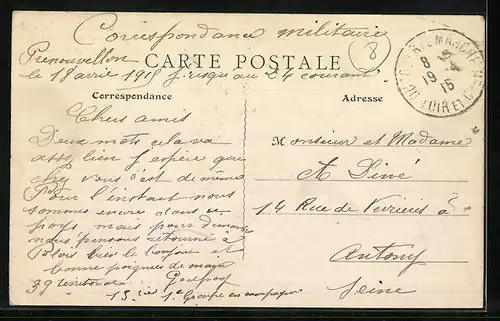 Correspondance militaire
8
Prenouvellon
CARTE POSTALE
le 18 avril 1915 jusqu au 24 courant
Correspondance
Adresse
8
19 4
15
LOIR ET C
Chers amis
Deux mots cela va
assez bien j espère que
chez vous c'est de même
Pour l'instant nous
sommes encore dans ce
pays, mais pour
nous pensons retourné à
Blois le bonjour et
bonne poignées de main
39 territoriale
13 cie 1e Groupe en campagne
Monsieur et Madame
A Diné
14 Rue de Verrières à
Antony
Seine